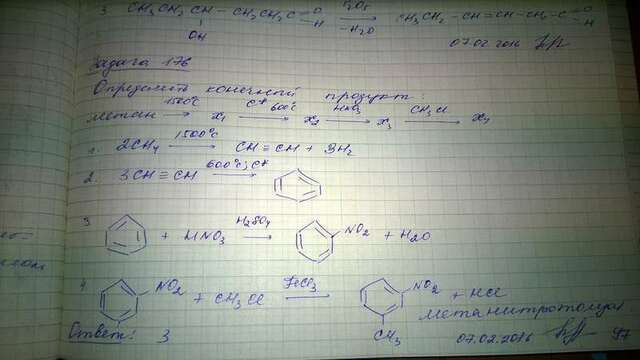 3. CH₃CH₂CH – CH₂CH₂C=O H P₂O₅ –H₂O CH₃CH₂–CH=CH–CH₂–C=O H
OH
07.02.2016
Задача 176
Определить конечный продукт:
метан 1500°C → x₁ C* 600°C → x₂ HNO₃ → x₃ CH₃Cl → x₄
1. 2CH₄ 1500°C → CH≡CH + 3H₂
2. 3CH≡CH 600°C, C* →
3 + HNO₃ H₂SO₄ → NO₂ + H₂O
4 NO₂ + CH₃Cl FeCl₃ → NO₂ + HCl
CH₃ метанитротолуол
Ответ: 3 07.02.2016 97